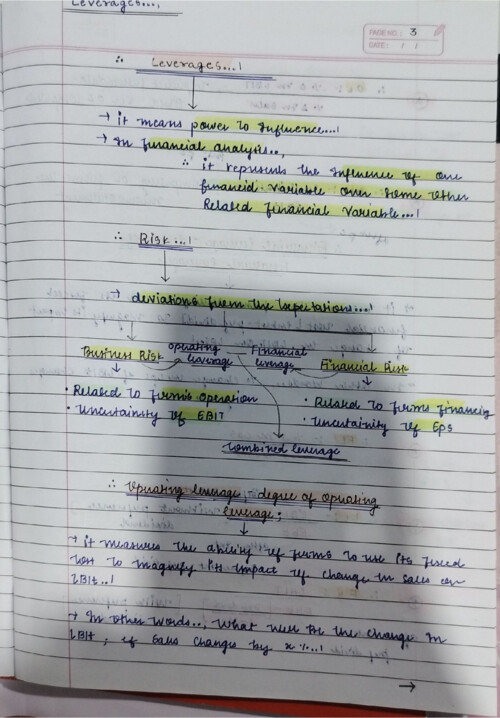 Leverages...,
PAGE NO.: 3
DATE: / /
∴ Leverages...!
→ it means power to influence...!
→ In financial analysis..,
∴ it represents the influence of one
financial variable over some other
Related financial variable...!
∴ Risk...!
→ deviations from the expectations...!
Business Risk operating leverage — Financial leverage Financial Risk
• Related to firm's operation
• Uncertainity of EBIT
• Related to firms financing
• Uncertainity of Eps
Combined leverage
∴ Operating leverage - degree of operating
leverage;
→ it measures the ability of firms to use its fixed
cost to magnify its impact of change in sales on
EBIT..!
→ In other words.., What will be the change in
EBIT ; if sales changes by x %...!
→